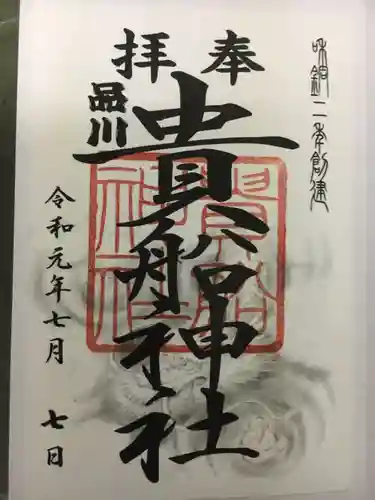 奉拝
和銅二年創建
品川
貴船神社
貴船
神社
令和元年七月七日